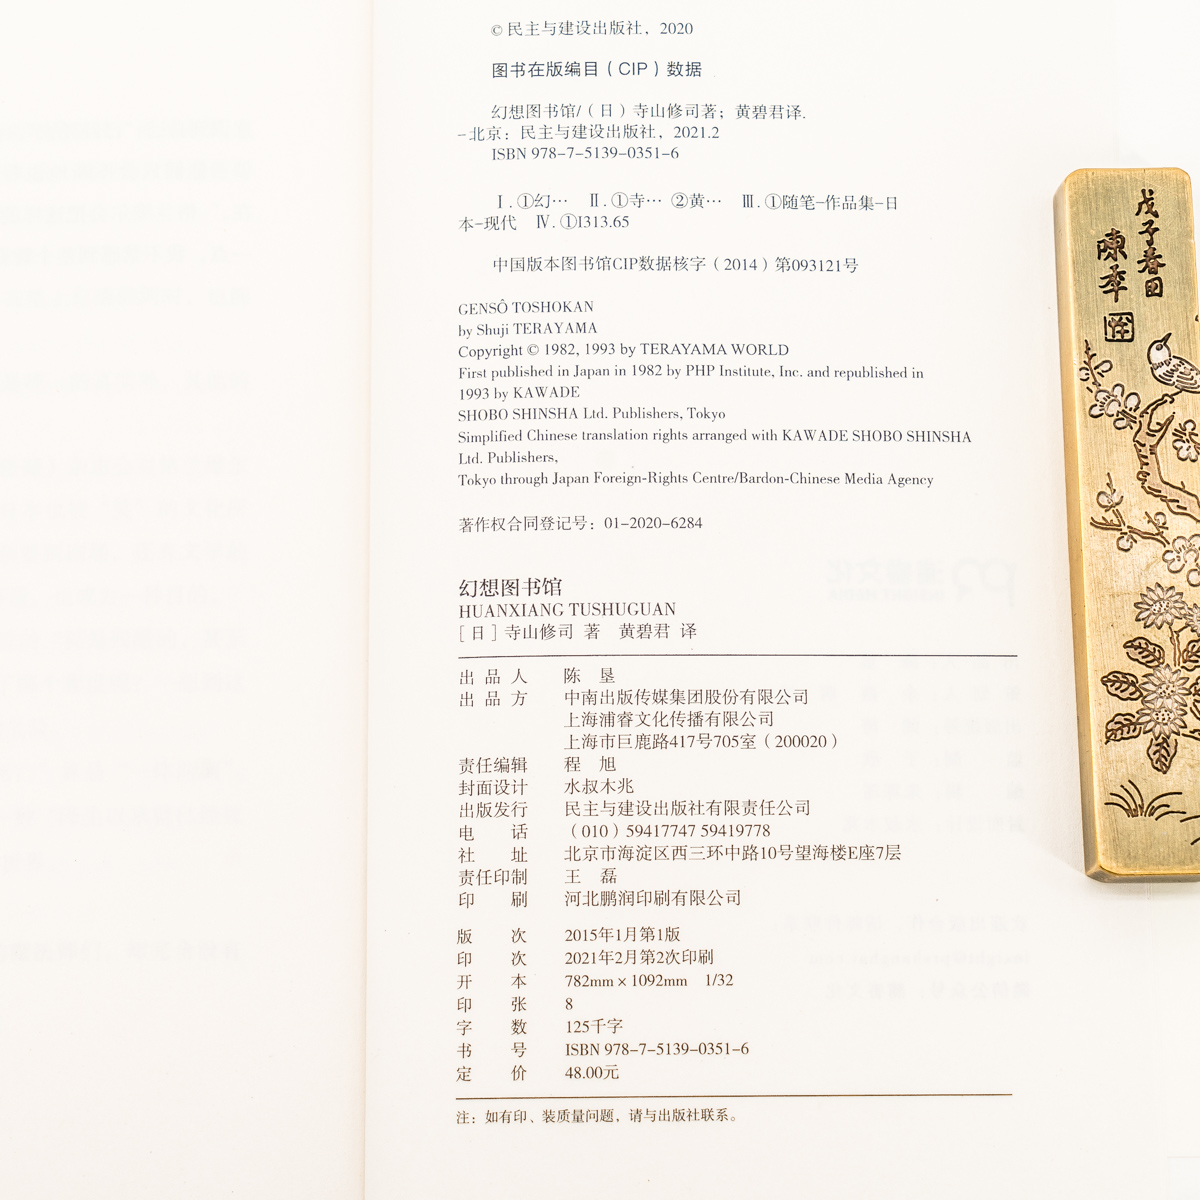 © 民主与建设出版社，2020
图书在版编目（CIP）数据
幻想图书馆/（日）寺山修司著；黄碧君译.
－北京：民主与建设出版社，2021.2
ISBN 978-7-5139-0351-6
Ⅰ.①幻… Ⅱ.①寺… ②黄… Ⅲ.①随笔-作品集-日
本-现代 Ⅳ.①I313.65
中国版本图书馆CIP数据核字（2014）第093121号
GENSÔ TOSHOKAN
by Shuji TERAYAMA
Copyright © 1982, 1993 by TERAYAMA WORLD
First published in Japan in 1982 by PHP Institute, Inc. and republished in
1993 by KAWADE
SHOBO SHINSHA Ltd. Publishers, Tokyo
Simplified Chinese translation rights arranged with KAWADE SHOBO SHINSHA
Ltd. Publishers,
Tokyo through Japan Foreign-Rights Centre/Bardon-Chinese Media Agency
著作权合同登记号：01-2020-6284
幻想图书馆
HUANXIANG TUSHUGUAN
［日］寺山修司 著 黄碧君 译
出品人 陈 垦
出品方 中南出版传媒集团股份有限公司
上海浦睿文化传播有限公司
上海市巨鹿路417号705室（200020）
责任编辑 程 旭
封面设计 水叔木兆
出版发行 民主与建设出版社有限责任公司
电 话 （010）59417747 59419778
社 址 北京市海淀区西三环中路10号望海楼E座7层
责任印制 王 磊
印 刷 河北鹏润印刷有限公司
版 次 2015年1月第1版
印 次 2021年2月第2次印刷
开 本 782mm × 1092mm 1/32
印 张 8
字 数 125千字
书 号 ISBN 978-7-5139-0351-6
定 价 48.00元
注：如有印、装质量问题，请与出版社联系。
戊子春日